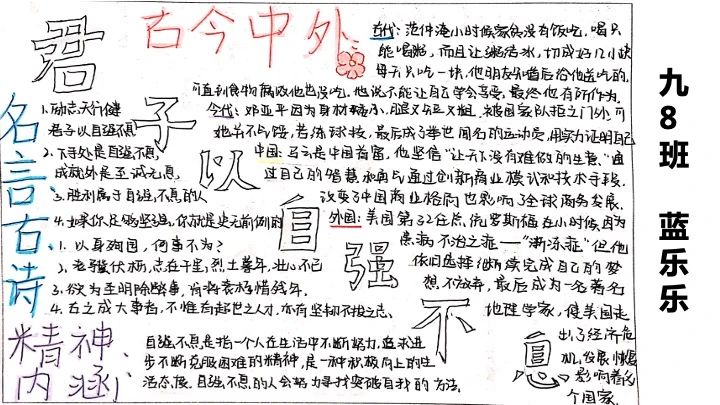 君子以自强不息
古今中外
古代：范仲淹小时候家贫没有饭吃，喝只
能喝粥，而且让粥结冰，切成好几小块
每天只吃一块，他朋友知道后给他送吃的，
可直到食物腐败他也没吃，他说不能让自己学会享受，最终也有所作为。
今代：邓亚平因为身材矮小，腿又短又粗，被国家队拒之门外，可
她并不气馁，苦练球技，最后成为举世闻名的运动员，用实力证明自己
中国：马云是中国首富，他坚信"让天下没有难做的生意。"通
过自己的智慧和勇气通过创新商业模式和技术手段，
改变了中国商业格局也影响了全球商务发展。
外国：美国第32任总统罗斯福在小时候因为
患病不治之症——"
但他
依旧选择继续完成自己的梦
想，不放弃，最后成为一名著名
地理学家，使美国走
出了经济危
机，发展
影响着各
个国家.
名言古诗
1.励志，天行健
君子以自强不息
2.下手处是自强不息，
成就外是至诚无息，
3.胜利属于自强不息的人
4.如果你足够坚强，你就是史无前例的
1.以身殉国，何事不为？
2.老骥伏枥，志在千里；烈士暮年，壮心不已
3.欲为圣明除弊事，肯将衰朽惜残年.
4.古之成大事者，不惟有超世之才，亦有坚韧不拔之志、
精神内涵、
自强不息是指一个人在生活中不断努力，追求进
步不断克服困难的精神，是一种积极向上的生
活态度。自强不息的人会努力寻找突破自我的方法，
九8班 蓝乐乐